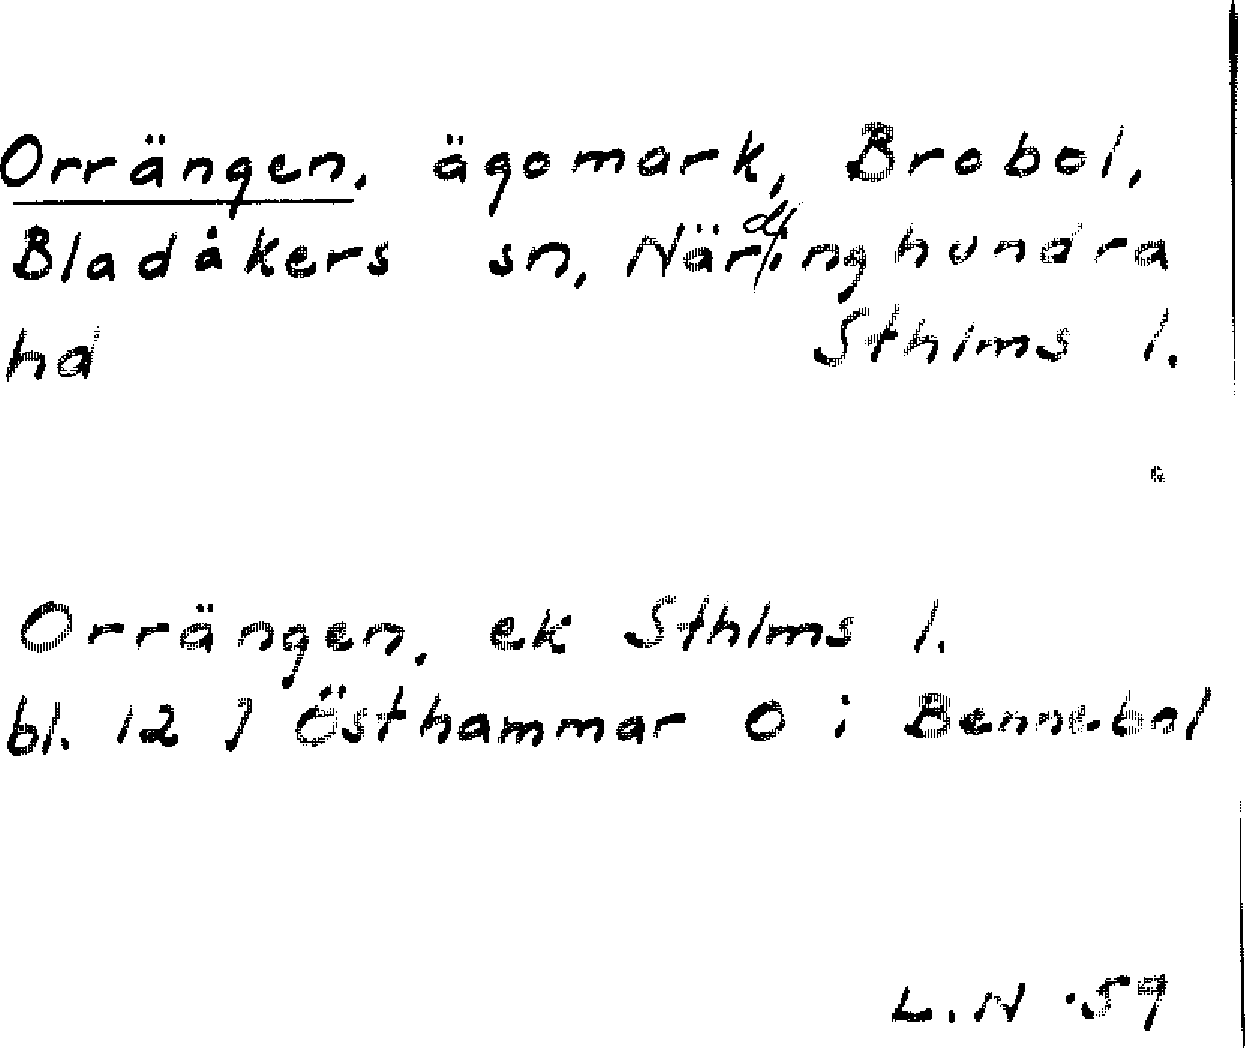 Orrängen, ägomark, Brobol,
Bladåkers sn, Närdinghundra
hd Sthlms l.
Orrängen, ek Sthlms l.
bl. 12 J Östhammar O i Bennebol
L.N -59